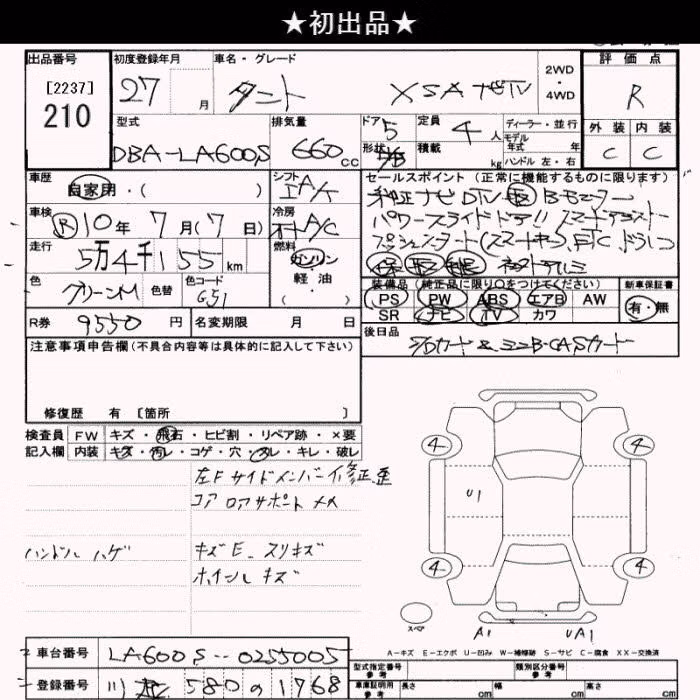 ★初出品★
出品番号 初度登録年月 車名・グレード 2WD・4WD 評価点
[2237]
210 27 月 タント XSA ナビTV R
型式 排気量 ドア 5 定員 4 人 ディーラー・並行 外装 内装
モデル年式 年
DBA-LA600S 660 cc 形状 5/B 積載 kg ハンドル 左・右 C C
車歴 自家用・( ) シフト IA/K セールスポイント(正常に機能するものに限ります)
純正ナビ DTV 革 B-モニター
車検 R 10年 7月(7日) 冷房 A/C パワースライドドア!! スマートアシスト
走行 5万4千155km 燃料 ガソリン・軽油 ( ) プッシュスタート(スマートキー)、ETC、ドラレコ
保 取 記 ネストテルミ
色 グリーンM 色替 色コード G51 装備品(純正品に限り○をつけてください) 新車保証書
PS PW ABS エアB AW 有・無
R券 9550円 名変期限 月 日 SR ナビ TV カワ
後日品 SDカード & ミニB-CASカード
注意事項申告欄(不具合内容等は具体的に記入して下さい)
修復歴 有 [箇所 ]
検査員 FW キズ・飛石・ヒビ割・リペア跡・×要
記入欄 内装 キズ・汚レ・コゲ・穴・スレ・キレ・破レ
左Fサイドメンバーイ修正歪
コアロアサポートメメ
ハンドルハゲ キズE. スリキズ
ホイールキズ
4 4
U1
4 4
スペア A1 UA1
A-キズ E-エクボ U-凹み W-補修跡 S-サビ C-腐食 XX-交換済
車台番号 LA600S--0255005 型式指定番号 参考 類別区分番号 参考
登録番号 580 の 1768 車庫証明用 参考 長さ cm 幅 cm 高さ cm